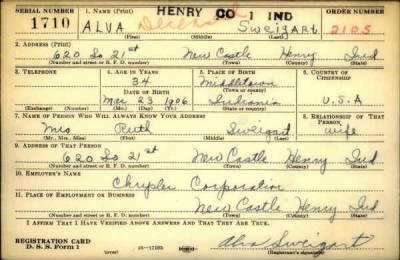 SERIAL NUMBER 1. NAME (Print) HENRY CO 1 IND ORDER NUMBER
1710 ALVA Deceased Sweigart 2105
(First) (Middle) (Last)
2. ADDRESS (Print)
620 So 21st New Castle Henry Ind
(Number and street or R. F. D. number) (Town) (County) (State)
3. TELEPHONE 4. AGE IN YEARS 5. PLACE OF BIRTH 6. COUNTRY OF CITIZENSHIP
34 Middletown
DATE OF BIRTH (Town or county)
Mar 23 1906 Indiania U.S.A
(Exchange) (Number) (Mo.) (Day) (Yr.) (State or country)
7. NAME OF PERSON WHO WILL ALWAYS KNOW YOUR ADDRESS 8. RELATIONSHIP OF THAT PERSON
Mrs Ruth Sweigart wife
(Mr., Mrs., Miss) (First) (Middle) (Last)
9. ADDRESS OF THAT PERSON
620 So 21st New Castle Henry Ind
(Number and street or R. F. D. number) (Town) (County) (State)
10. EMPLOYER'S NAME
Chrysler Corporation
11. PLACE OF EMPLOYMENT OR BUSINESS
New Castle Henry Ind
(Number and street or R. F. D. number) (Town) (County) (State)
I AFFIRM THAT I HAVE VERIFIED ABOVE ANSWERS AND THAT THEY ARE TRUE.
REGISTRATION CARD
D. S. S. Form 1 (over) 16—17105 Alva Sweigart
(Registrant's signature)